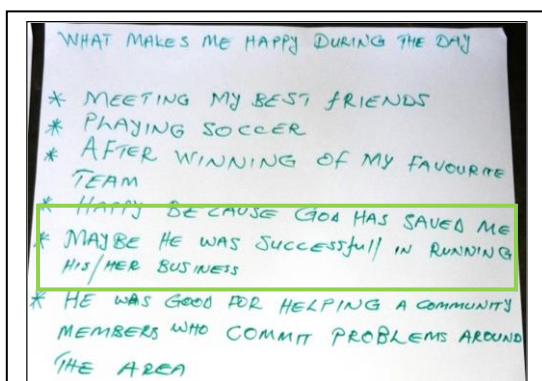 WHAT MAKES ME HAPPY DURING THE DAY
* MEETING MY BEST FRIENDS
* PLAYING SOCCER
* AFTER WINNING OF MY FAVOURITE
TEAM
* HAPPY BECAUSE GOD HAS SAVED ME
* MAYBE HE WAS SUCCESSfull IN RUNNING
HIS/HER BUSINESS
* HE WAS GOOD FOR HELPING A COMMUNITY
MEMBERS WHO COMMIT PROBLEMS AROUND
THE AREA